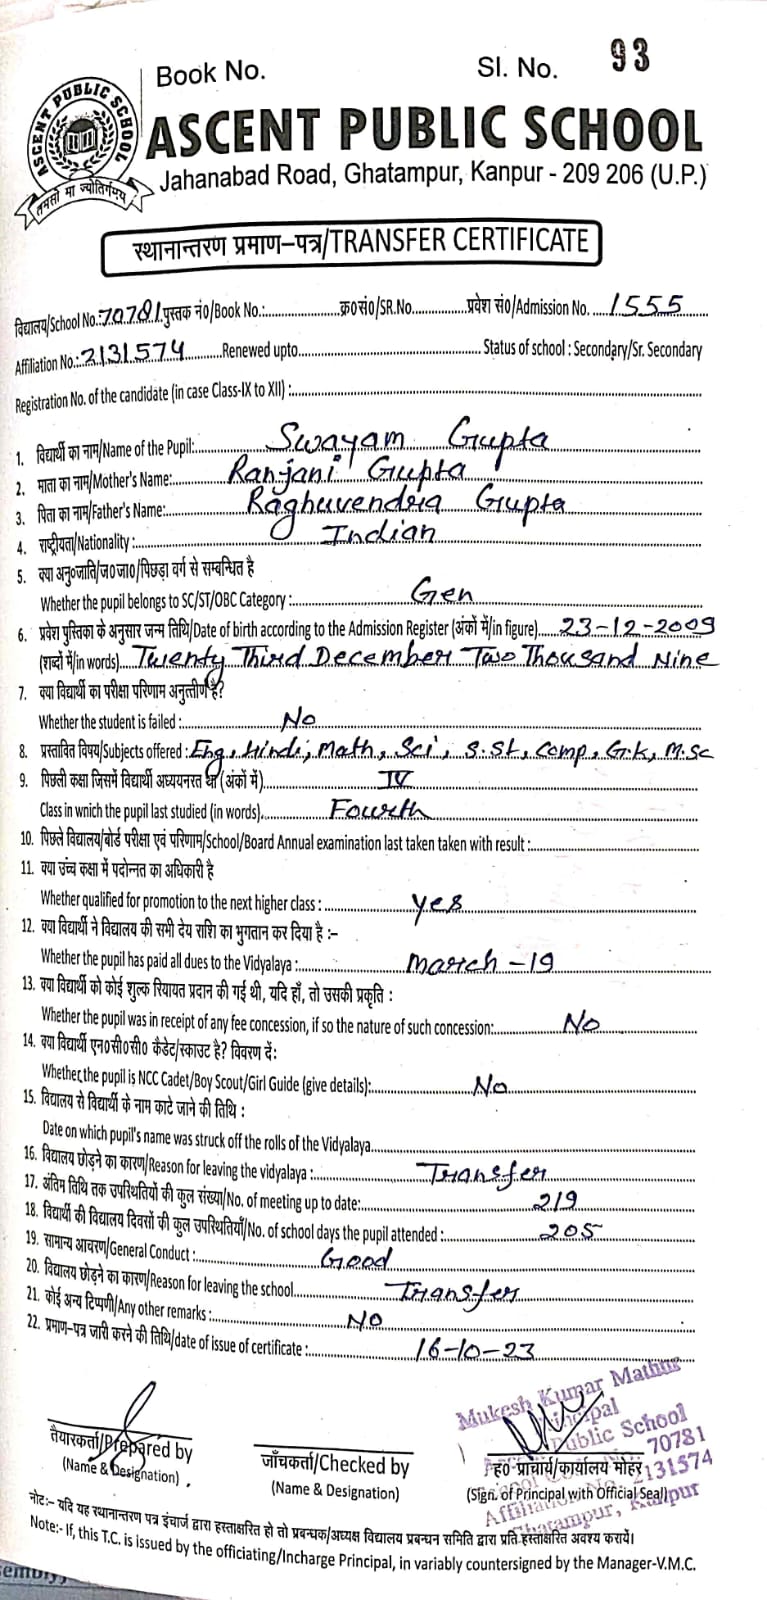 Book No.
Sl. No. 93
ASCENT PUBLIC SCHOOL
ASCENT PUBLIC SCHOOL
तमसो मा ज्योतिर्गमय
Jahanabad Road, Ghatampur, Kanpur - 209 206 (U.P.)
स्थानान्तरण प्रमाण–पत्र/TRANSFER CERTIFICATE
विद्यालय/School No.:70781 पुस्तक नं०/Book No.:............ क्र०सं०/SR.No............. प्रवेश सं०/Admission No. ....1555
Affiliation No.:2131574 ........Renewed upto.................... Status of school : Secondary/Sr. Secondary
Registration No. of the candidate (in case Class-IX to XII) :....................
1. विद्यार्थी का नाम/Name of the Pupil:........ Swayam Gupta
2. माता का नाम/Mother's Name:........ Ranjani Gupta
3. पिता का नाम/Father's Name:........ Raghuvendra Gupta
4. राष्ट्रीयता/Nationality :........ Indian
5. क्या अनु०जाति/ज०जा०/पिछड़ा वर्ग से सम्बन्धित है
Whether the pupil belongs to SC/ST/OBC Category :........ Gen
6. प्रवेश पुस्तिका के अनुसार जन्म तिथि/Date of birth according to the Admission Register (अंकों में/in figure).... 23-12-2009
(शब्दों में/in words).. Twenty Third December Two Thousand Nine
7. क्या विद्यार्थी का परीक्षा परिणाम अनुत्तीर्ण है?
Whether the student is failed :........ No
8. प्रस्तावित विषय/Subjects offered : Eng, Hindi, Math, Sci, S.St, Comp, G.K, M.Sc
9. पिछली कक्षा जिसमें विद्यार्थी अध्ययनरत था (अंकों में)........ IV
Class in wnich the pupil last studied (in words)........ Fourth
10. पिछले विद्यालय/बोर्ड परीक्षा एवं परिणाम/School/Board Annual examination last taken taken with result :........
11. क्या उच्च कक्षा में पदोन्नत का अधिकारी है
Whether qualified for promotion to the next higher class : ........ Yes
12. क्या विद्यार्थी ने विद्यालय की सभी देय राशि का भुगतान कर दिया है :-
Whether the pupil has paid all dues to the Vidyalaya :........ March -19
13. क्या विद्यार्थी को कोई शुल्क रियायत प्रदान की गई थी, यदि हाँ, तो उसकी प्रकृति :
Whether the pupil was in receipt of any fee concession, if so the nature of such concession:........ No
14. क्या विद्यार्थी एन०सी०सी० कैडेट/स्काउट है? विवरण दें:
Whether,the pupil is NCC Cadet/Boy Scout/Girl Guide (give details):........ No
15. विद्यालय से विद्यार्थी के नाम काटे जाने की तिथि :
Date on which pupil's name was struck off the rolls of the Vidyalaya........
16. विद्यालय छोड़ने का कारण/Reason for leaving the vidyalaya :........ Transfer
17. अंतिम तिथि तक उपस्थितियों की कुल संख्या/No. of meeting up to date:........ 219
18. विद्यार्थी की विद्यालय दिवसों की कुल उपस्थितियाँ/No. of school days the pupil attended :........ 205
19. सामान्य आचरण/General Conduct :........ Good
20. विद्यालय छोड़ने का कारण/Reason for leaving the school........ Transfer
21. कोई अन्य टिप्पणी/Any other remarks :........ NO
22. प्रमाण-पत्र जारी करने की तिथि/date of issue of certificate :........ 16-10-23
Mukesh Kumar Mathur
Principal
Public School
70781
2131574
Ghatampur, Kanpur
तैयारकर्ता/Prepared by
(Name & Designation)
जाँचकर्ता/Checked by
(Name & Designation)
ह० प्राचार्य/कार्यालय मोहर
(Sign. of Principal with Official Seal)
नोट:- यदि यह स्थानान्तरण पत्र इंचार्ज द्वारा हस्ताक्षरित हो तो प्रबन्धक/अध्यक्ष विद्यालय प्रबन्धन समिति द्वारा प्रति हस्ताक्षरित अवश्य करायें।
Note:- If, this T.C. is issued by the officiating/Incharge Principal, in variably countersigned by the Manager-V.M.C.